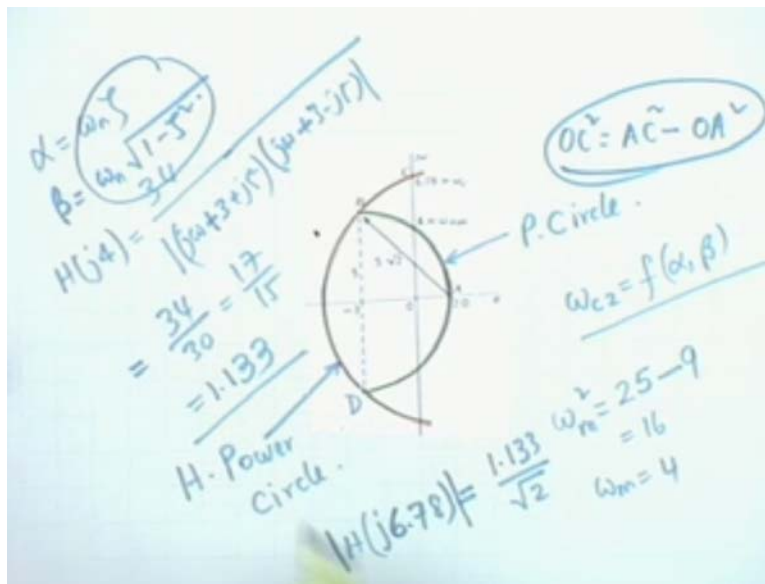 α = ωn ζ
β = ωn √1-ζ²
H(j4) = 34 / |(jω+3+j5)(jω+3-j5)|
= 34/30 = 17/15
= 1.133
H. Power
Circle.
D
-3
3
5√2
0
P. Circle.
OC² = AC² - OA²
ωc2 = f(α, β)
ωm² = 25-9
= 16
ωm = 4
|H(j6.78)| = 1.133/√2